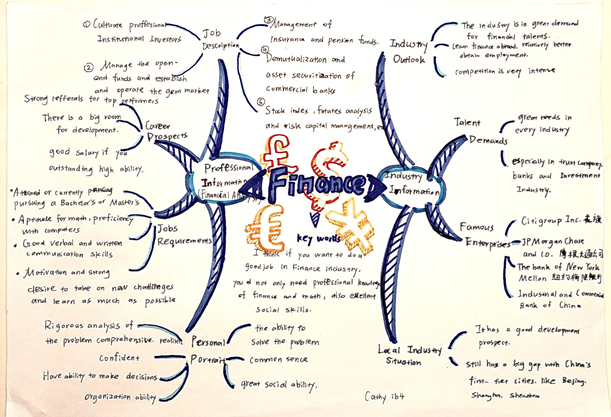 Finance
key words
I think if you want to do a
good job in Finance industry.
you do not only need professional knowledge
of finance and math, also excellent
social skills.
Professional
Information
(Financial Analyst)
Job
Description
① Cultivate proffesional
Institutional Investors
② Manage the open-
end funds and establish
and operate the gem market
③ Management of
insurance and pension funds.
④ Demutualization and
asset securitization of
commercial banks
⑤ Stock index, futures analysis
and risk capital management,
Career
Prospects
Strong refferals for top performers
There is a big room
for development.
good salary if you
outstanding high ability.
Jobs
Requirements
• Attained or currently
pursuing a Bachelor's or Master's
• Aptitude for math, proficiency
with computers
• Good verbal and written
communication skills
• Motivation and strong
desire to take on new challenges
and learn as much as possible
Personal
Portrait
Rigorous analysis of
the problem comprehensive. realism
Confident
Have ability to make decisions
organization ability
the ability to
solve the problem
common sence
great social ability.
Industry
Information
Industry
Outlook
The industry is in great demand
for financial talents.
Learn finance abroad, relatively better
obtain employment.
competition is very intense
Talent
Demands
great needs in
every industry
especially in trust company,
banks and Investment
Industry.
Famous
Enterprises
Citigroup Inc. 花旗
JP Morgan Chase
and CO. 摩根大通公司
The bank of New York
Mellon 纽约梅隆银行
Industrial and Commercial
Bank of China
Local Industry
Situation
It has a good development
prospect.
still has a big gap with China's
first-tier cities. like Beijing.
Shanghai. Shenzhen
Cathy 1b4